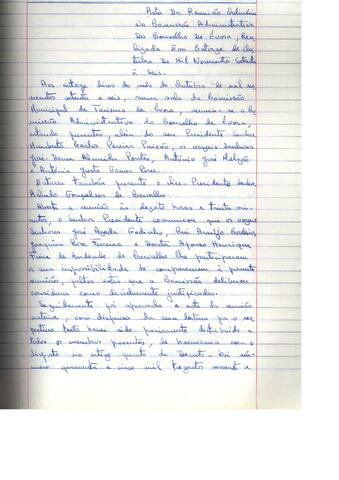 Acta Da Reunião Ordinária
Da Comissão Administrativa
Do Concelho De Évora, Rea-
lizada Em Catorze de Ou-
tubro De Mil Novecentos Setenta
E Seis.
Aos catorze dias do mês de Outubro de mil no-
vecentos setenta e seis, numa sala da Comissão
Municipal de Turismo de Évora, reuniu-se a Co-
missão Administrativa do Concelho de Évora,
estando presentes, além do seu Presidente Senhor
Humberto Carlos Pereira Paixão, os vogais senhores
José Almeida Pontes, António José
e António Justo Ramos Pires.
Estava também presente o Vice-Presidente Senhor
Gonçalves de Carvalho.
Aberta a reunião às dezoito horas e trinta mi-
nutos, o Senhor Presidente comunicou que os vogais
Senhores José Godinho, Rui Araújo
Joaquim Ferreira e Doutor Afonso Henrique
de Andrade de Carvalho lhe participaram
a sua impossibilidade de comparecerem à presente
reunião, faltas estas que a Comissão deliberou
considerar como devidamente justificadas.
Seguidamente foi aprovada a acta da reunião
anterior, com dispensa da sua leitura por o res-
pectivo texto haver sido previamente distribuído a
todos os membros presentes, de harmonia com o
disposto no artigo quarto do Decreto-Lei nú-
mero quarenta e cinco mil trezentos sessenta e